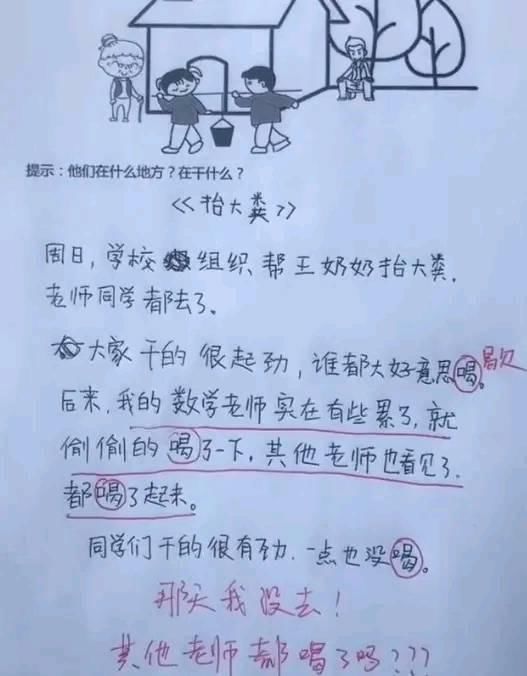 提示：他们在什么地方？在干什么？
《抬大粪》
周日，学校组织帮王奶奶抬大粪.
老师同学都去了.
大家干的很起劲，谁都大好意思喝。歇
后来，我的数学老师实在有些累了，就
偷偷的喝了一下，其他老师也看见了.
都喝了起来。
同学们干的很有劲.一点也没喝。
那天我没去！
其他老师都喝了吗???